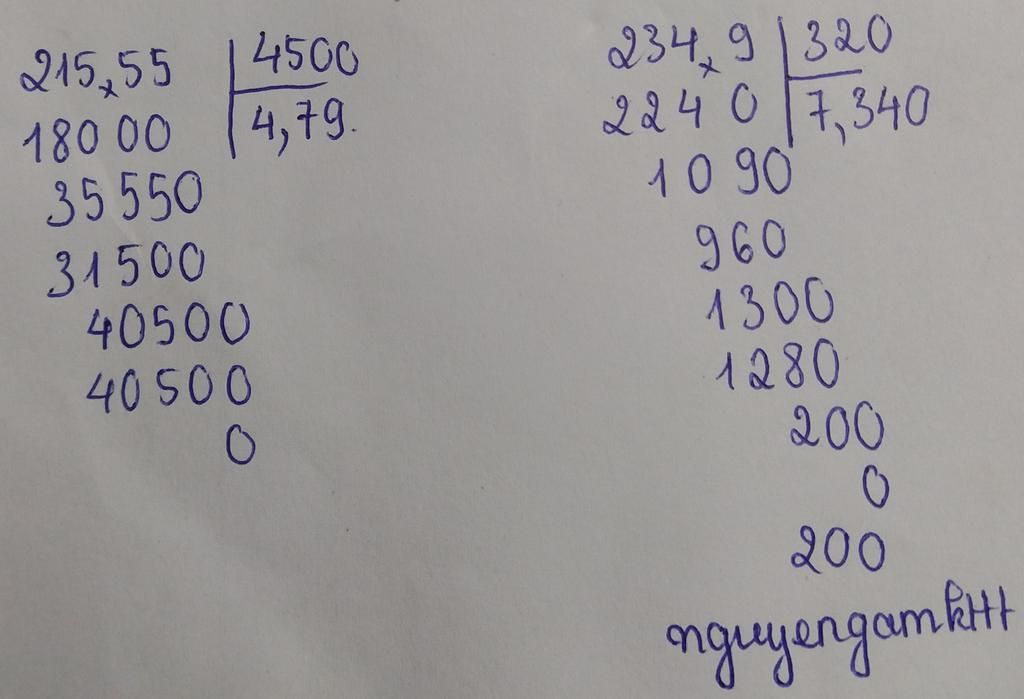 215,55 4500
18000 4,79.
35550
31500
40500
40500
0
234,9 320
2240 7,340
1090
960
1300
1280
200
0
200
nguyengamkHt